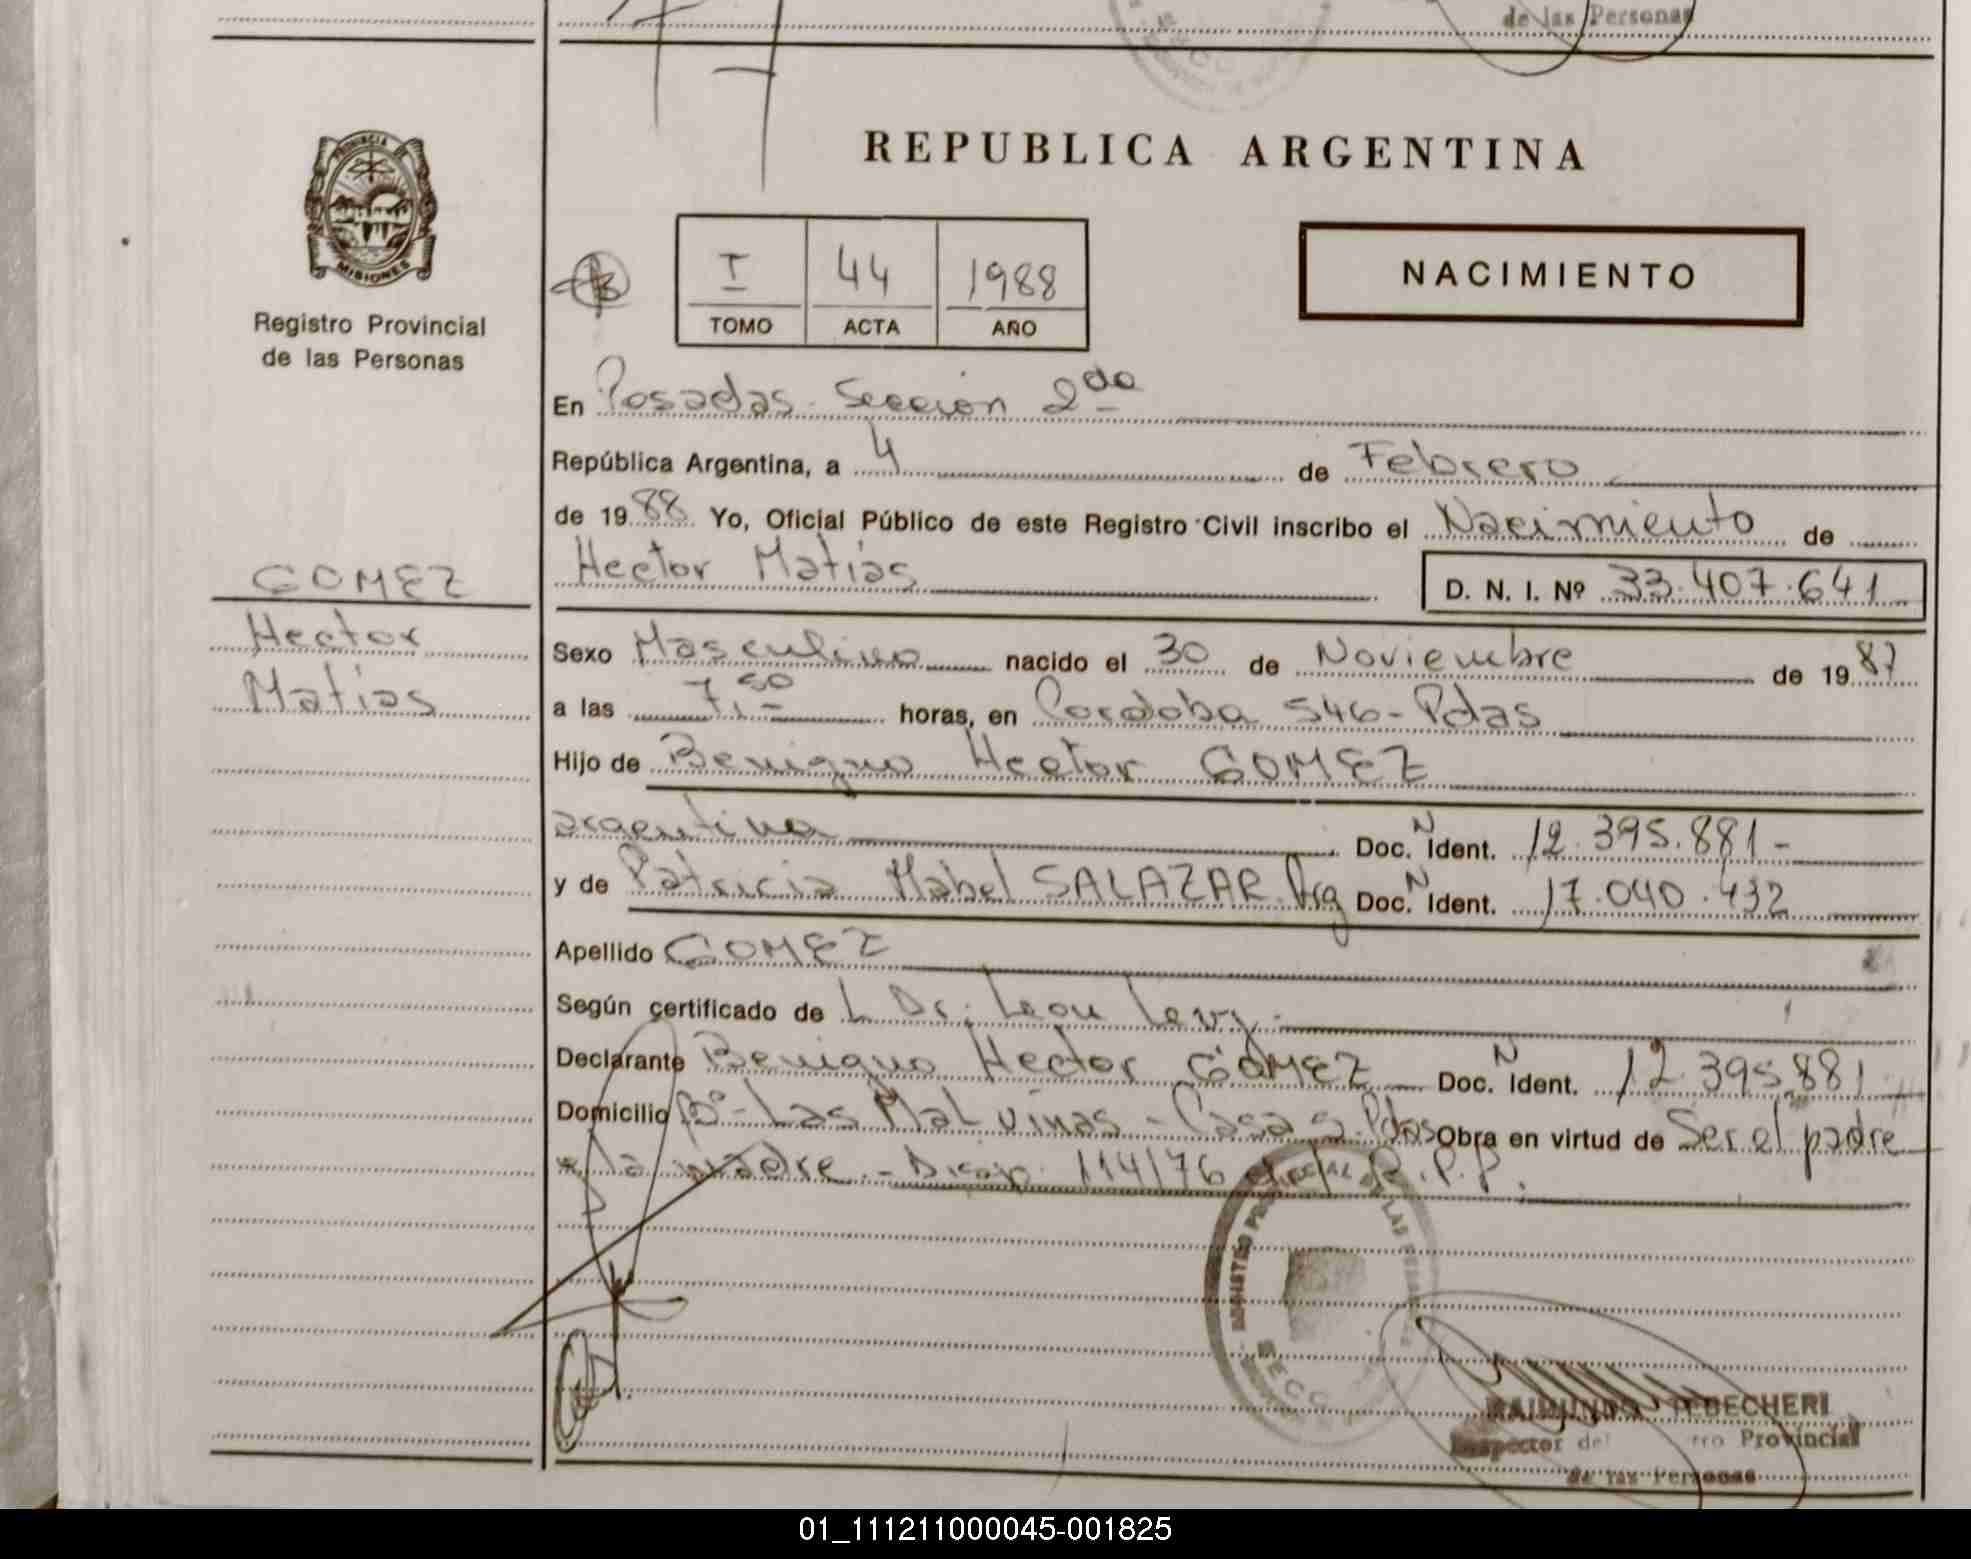 de las Personas
REPUBLICA ARGENTINA
PROVINCIA DE
MISIONES
Registro Provincial
de las Personas
I 44 1988
TOMO ACTA AÑO
NACIMIENTO
En Posadas Sección 2da
República Argentina, a 4 de Febrero
de 1988 Yo, Oficial Público de este Registro Civil inscribo el Nacimiento de
Hector Matias D. N. I. Nº 33.407.641
GOMEZ
Hector
Matias
Sexo Masculino nacido el 30 de Noviembre de 1987
a las 7,50 horas, en Cordoba 546-Pdas
Hijo de Benigno Hector GOMEZ
argentina Doc. N Ident. 12.395.881-
y de Patricia Mabel SALAZAR. Arg Doc. N Ident. 17.040.432
Apellido GOMEZ
Según certificado de L Dr. Leon Levy.
Declarante Benigno Hector GOMEZ Doc. N Ident. 12.395.881
Domicilio Bº-Las Malvinas - Casa 5. Pdas Obra en virtud de Ser el padre
la madre.- Disp. 114/76 del R.P.P.
RAIMUNDO
Inspector del Provincial
de las Personas
01_111211000045-001825